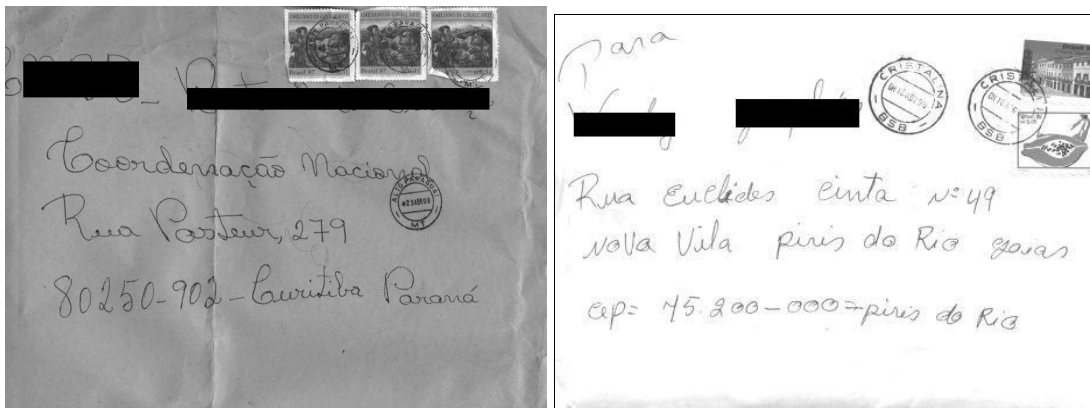 EMILIANO DI CAVALCANTI EMILIANO DI CAVALCANTI EMILIANO DI CAVALCANTI
Brasil 97 Brasil 97
Coordenação Nacional
Rua Pasteur, 279
80250-902 - Curitiba Paraná
ALTO PARAGUAI
MT
Para
CRISTALINA
BSB
CRISTALINA
BSB
Rua Euclides Cinta Nº 49
Nova Vila piris do Rio goias
cep= 75.200-000=piris do Rio